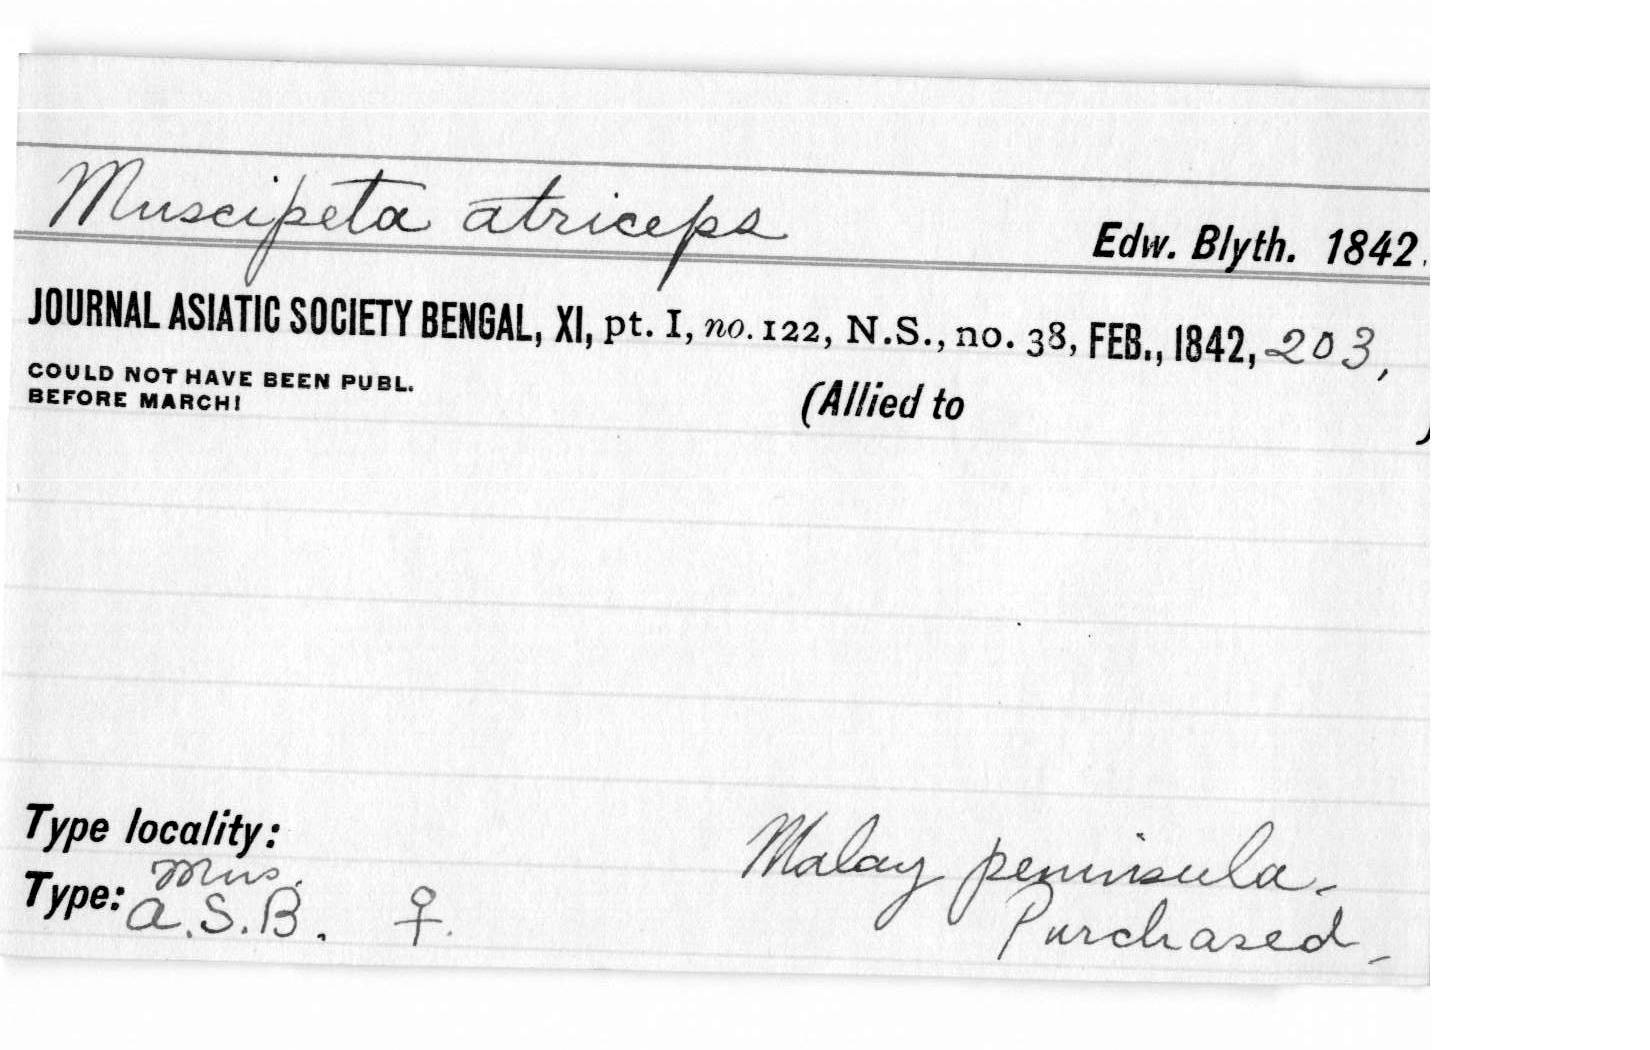 Muscipeta atriceps Edw. Blyth. 1842.
JOURNAL ASIATIC SOCIETY BENGAL, XI, pt. I, no. 122, N.S., no. 38, FEB., 1842, 203,
COULD NOT HAVE BEEN PUBL.
BEFORE MARCH!
(Allied to )
Type locality: Malay peninsula.
Type: Mus.
A.S.B. ♀. Purchased.